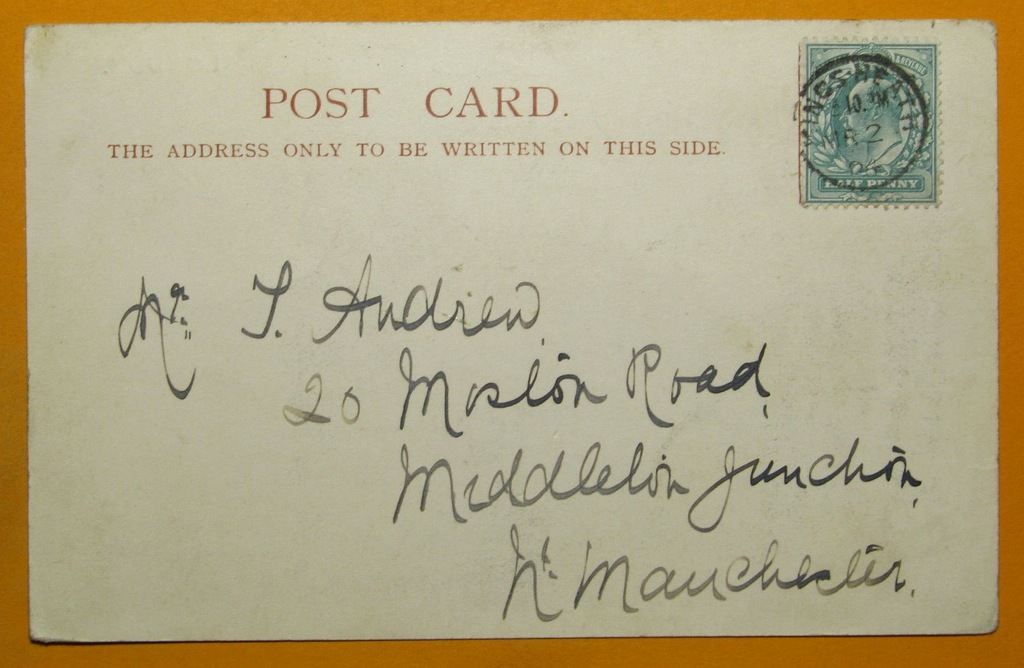 POST CARD.
THE ADDRESS ONLY TO BE WRITTEN ON THIS SIDE.
& REVENUE
KINGS HEATH
MR 2
HALF PENNY
Mr. T. Andrew,
20 Moston Road,
Middleton Junction,
Nr. Manchester.